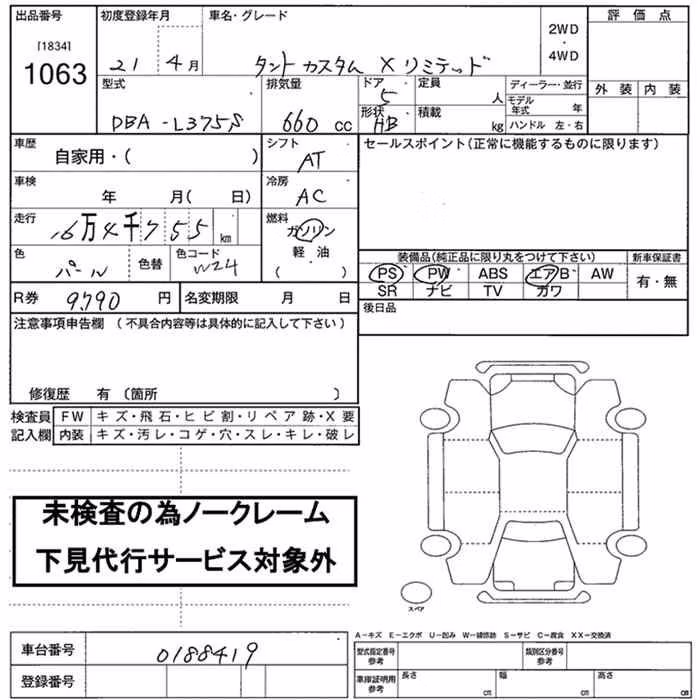 出品番号 初度登録年月 車名・グレード 評価点
[1834]
1063
21 4月 タントカスタム X リミテッド
2WD
・
4WD
外装 内装
型式 排気量 ドア・ 定員 ディーラー・並行
DBA-L375S 660 cc 5 人 モデル年式 年
形状 積載
HB kg ハンドル 左・右
車歴 シフト セールスポイント(正常に機能するものに限ります)
自家用・( ) AT
車検 冷房
年 月( 日) AC
走行 燃料
16万4千755 km ガソリン
軽・油
( )
色 色替 色コード
パール W24
装備品(純正品に限り丸をつけて下さい) 新車保証書
PS PW ABS エアB AW 有・無
SR ナビ TV カワ
R券 9790 円 名変期限 月 日
後日品
注意事項申告欄 (不具合内容等は具体的に記入して下さい)
修復歴 有(箇所 )
検査員 FW キズ・飛石・ヒビ割・リペア跡・X要
記入欄 内装 キズ・汚レ・コゲ・穴・スレ・キレ・破レ
未検査の為ノークレーム
下見代行サービス対象外
スペア
A-キズ E-エクボ U-凹み W-補修跡 S-サビ C-腐食 XX-交換済
車台番号 0188419
型式指定番号 参考 類別区分番号 参考
登録番号
車庫証明用 参考 長さ cm 幅 cm 高さ cm